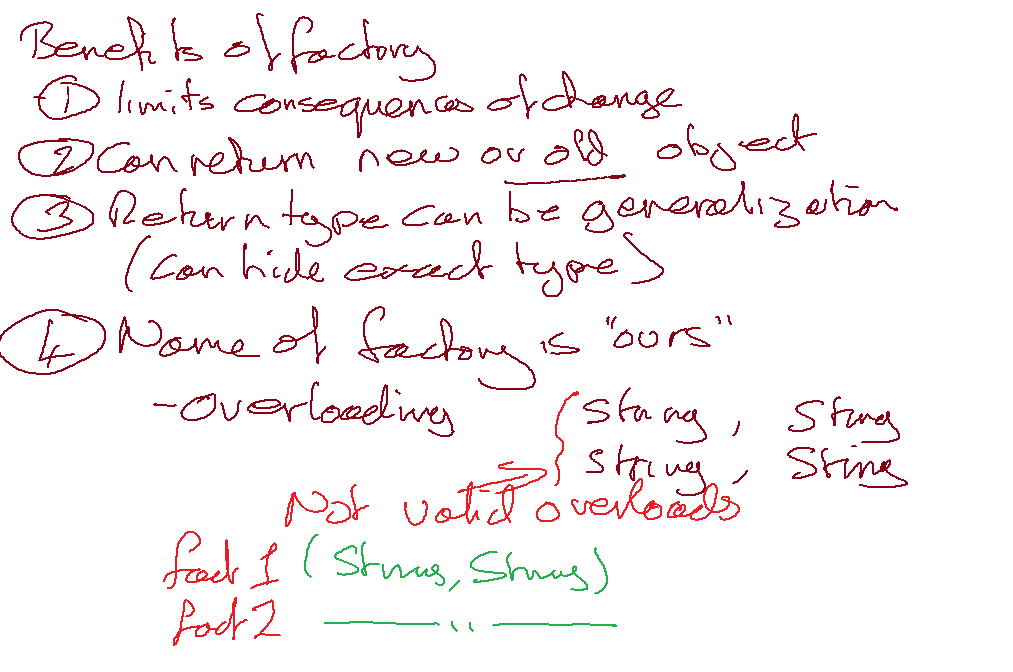 Benefits of factory
① limits consequences of change
② Can return new or old object
③ Return type can be generalization
(can hide exact type)
④ Name of factory is "ours"
- Overloading
String, String
String, String
Not valid overloads
fact 1 (String, String)
fact 2 —— '' ——